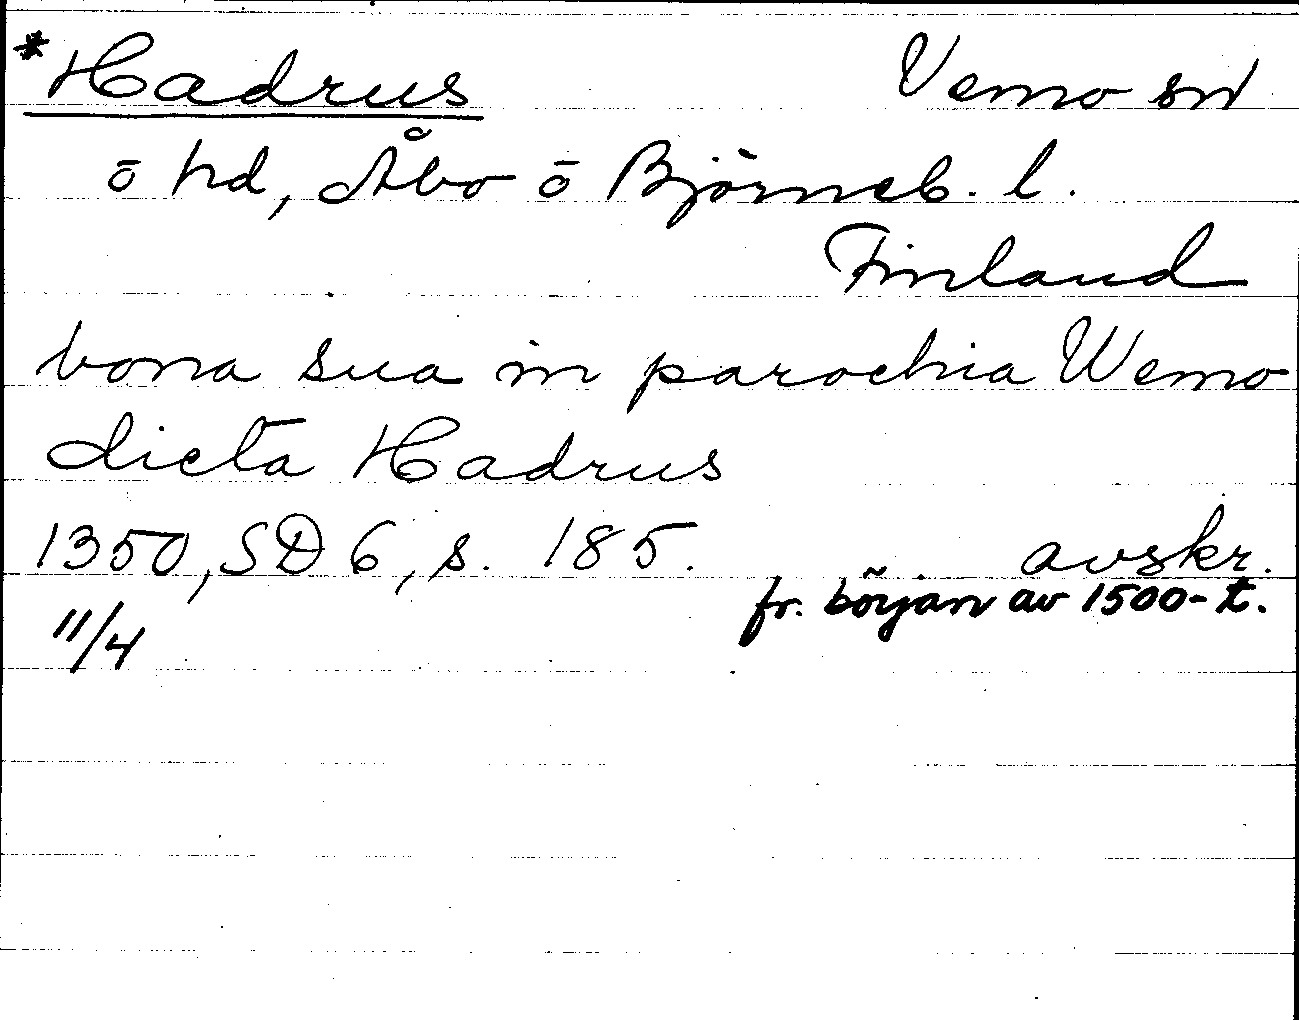 *Hadrus Vemo sn
ō hd, Åbo ō Björneb. l.
Finland
bona sua in parochia Wemo
dicta Hadrus
1350, SD 6, s. 185. avskr.
fr. början av 1500-t.
11/4